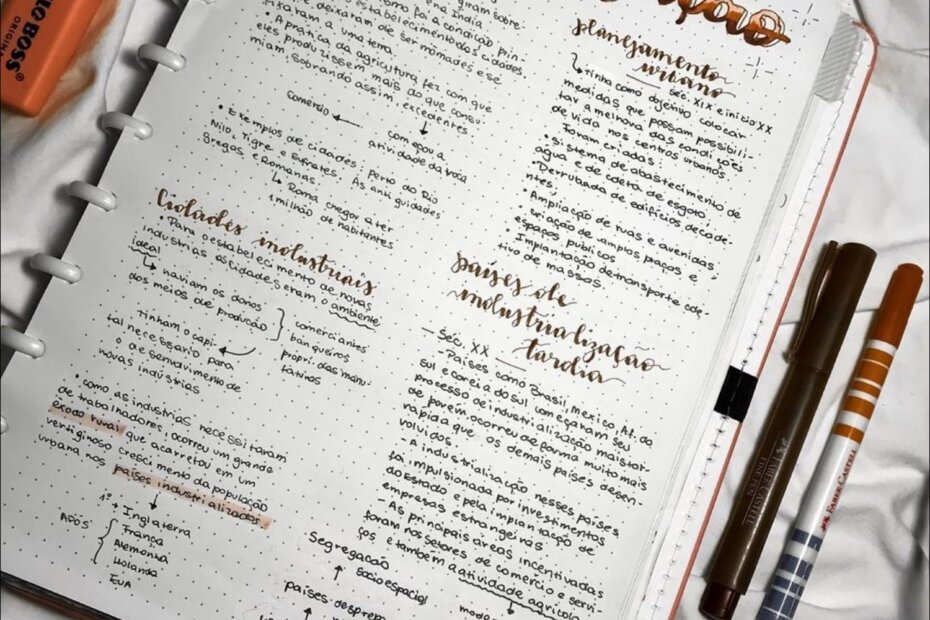 BOSS
ORIGINAL
giram sobre
na India
como foi a condição prin
estabelecimento das cidades.
deixaram de ser nômades e se
fixaram a uma terra.
A prática da agricultura fez com que
eles produzissem mais do que consu
miam sobrando assim, excedentes.
começou a
atividade da troca
comércio
• Exemplos de cidades: Perto do Rio
Nilo, Tigre e Eufrates. As antiguidades
gregas e Romanas.
Roma chegou a ter
1 milhão de habitantes
Cidades industriais
• Para o estabelecimento de novas
indústrias as cidades eram o ambiente
ideal
haviam os donos
dos meios de produção
comerciantes
banqueiros
propri. das manu-
faturas
Tinham o capi-
tal necessário para
o desenvolvimento de
novas indústrias
• como as indústrias necessitavam
de trabalhadores, ocorreu um grande
êxodo rural que acarretou em um
vertiginoso crescimento da população
urbana nos países industrializados.
1° → Inglaterra
Após
França
Alemanha
Holanda
EUA
planejamento
urbano
séc. XIX e início XX
tinha como objetivo colocar
medidas que possam possibili-
tar a melhora das condições
de vida nos centros urbanos.
Foram criadas:
• sistema de abastecimento de
água e de coleta de esgoto.
• Derrubada de edifícios decade-
ntes;
• Ampliação de ruas e avenidas,
criação de amplos paços e
espaços públicos
• Implantação de transporte cole-
tivo de massas.
países de
industrialização
tardia
— Séc. XX
– Países como Brasil, México, Af. do
sul e coréia do sul começaram seu
processo de industrialização mais tar-
de porém, ocorreu de forma muito mais
rápida que os demais países desen-
volvidos.
– A industrialização nesses países
foi impulsionada por investimentos
do estado e pela implantação de
empresas estrangeiras
– As principais áreas incentivadas
foram nos setores de comércio e servi-
ços e também a atividade agrícola
Segregação
socioespacial
países despre
FABER-CASTELL
FINE PEN
FABER-CASTELL